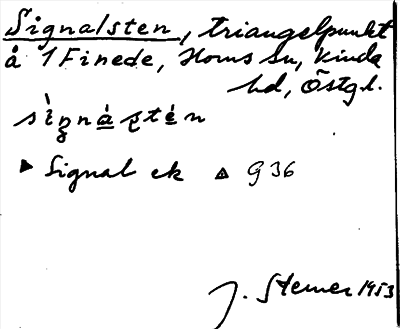 Signalsten, triangelpunkt
å 1 Finede, Horns sn, Kinda
hd, Östgl.
▶ Signal ek △ G 36
J. Sterner 1953